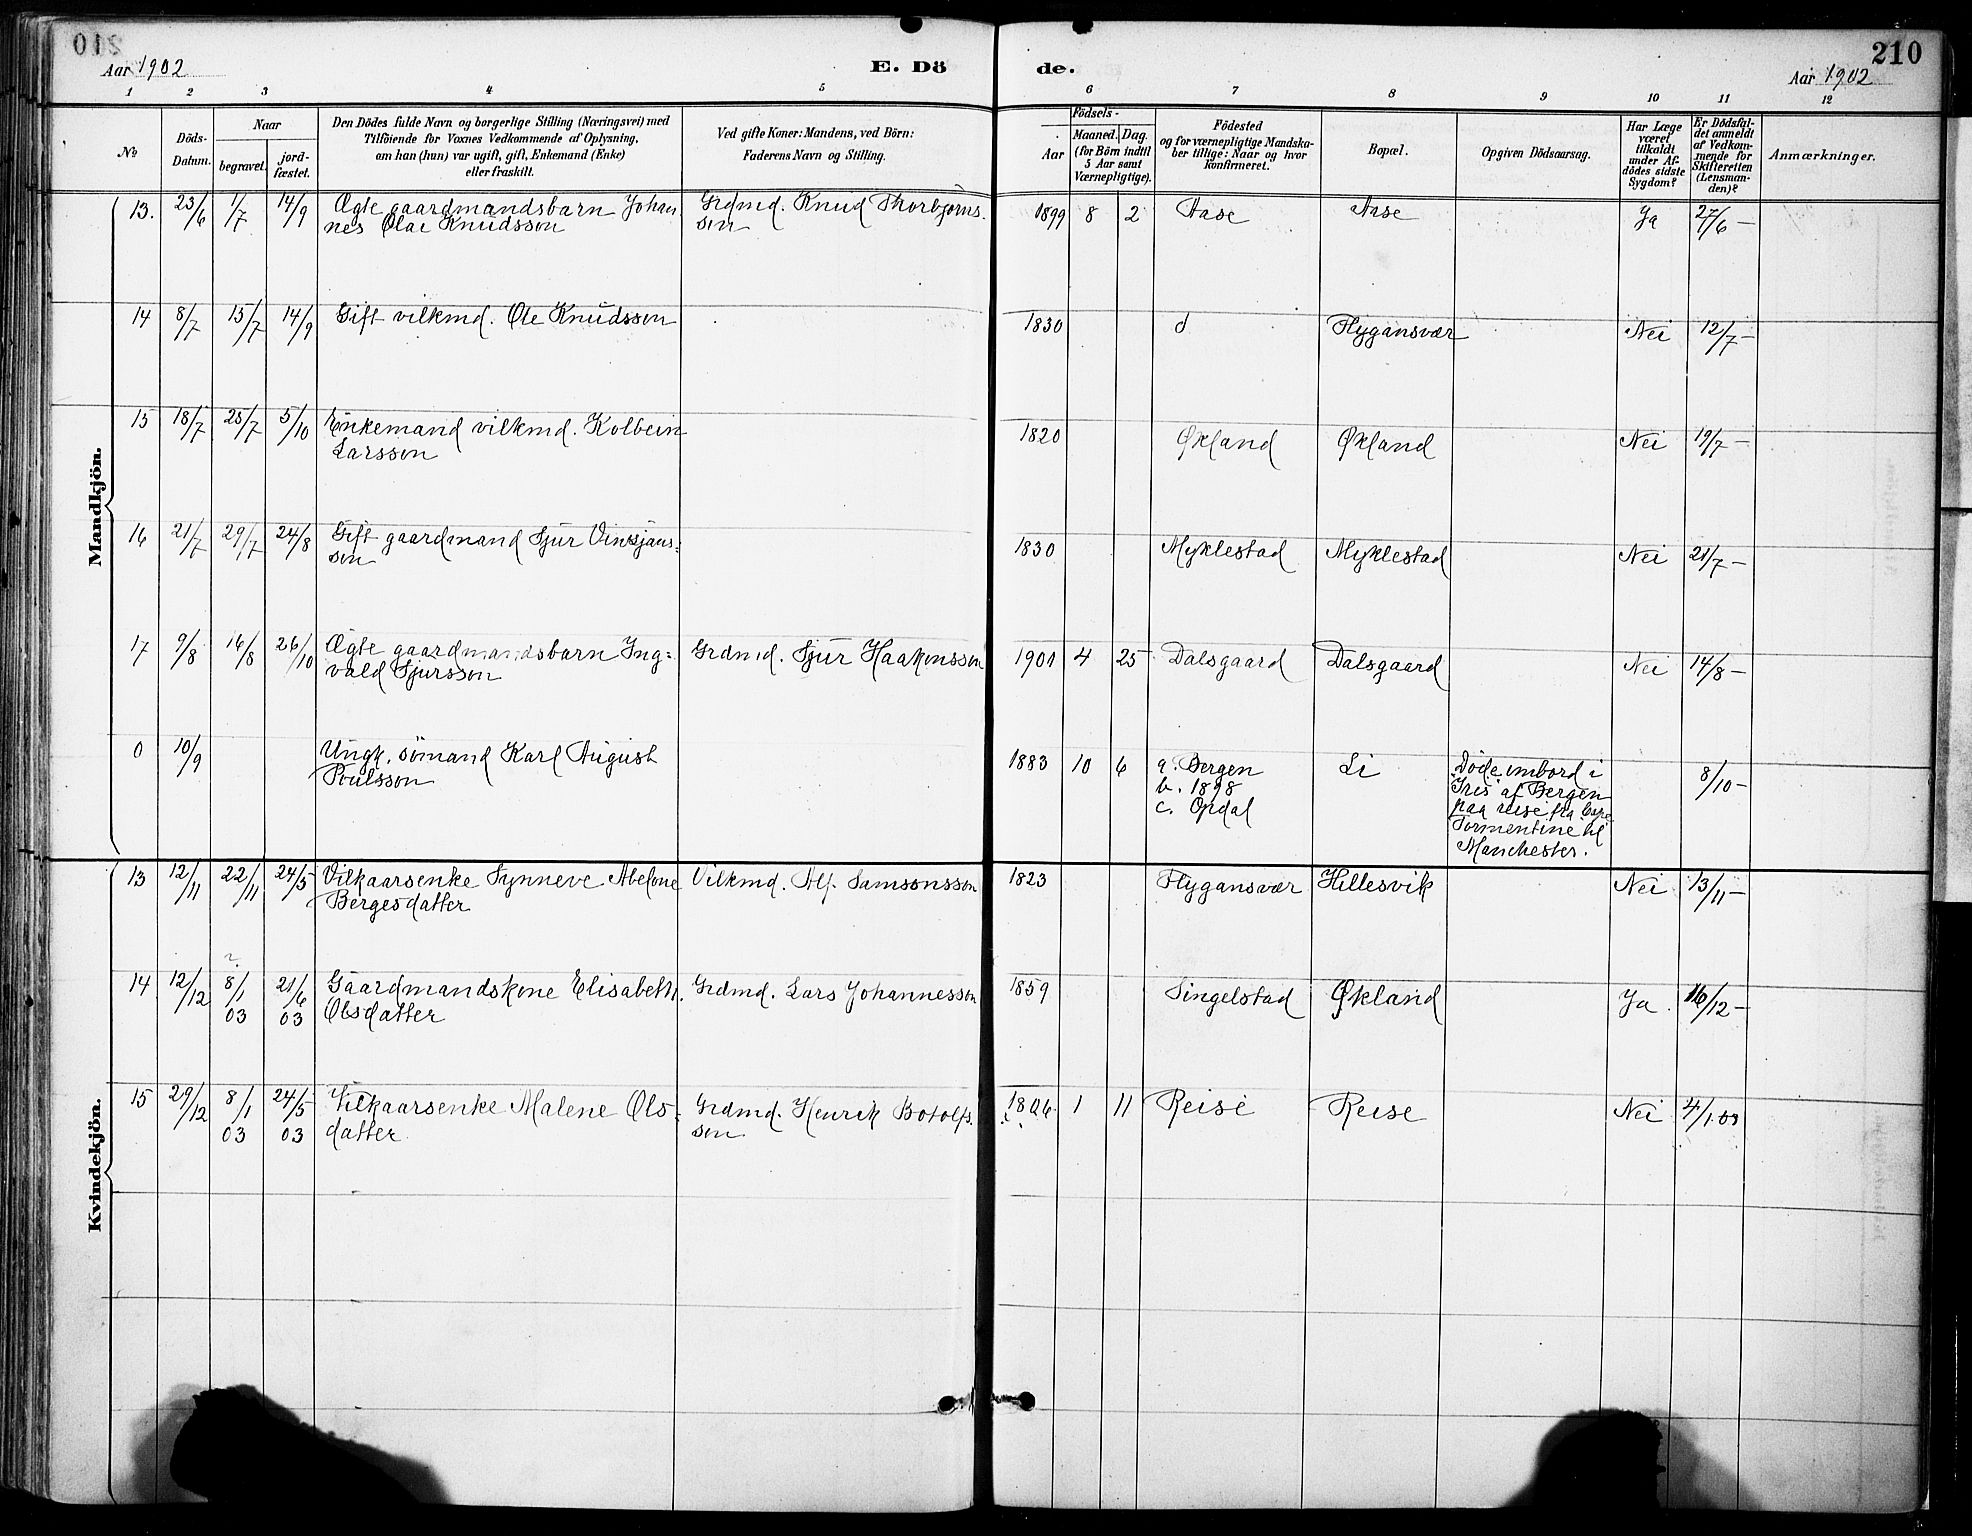 210
Aar 1902
E. Dö
de.
Aar 1902
1 2 3 4 5 6 7 8 9 10 11 12
No
Döds-
Datum.
Naar
begravet.
jord-
fæstet.
Den Dödes fulde Navn og borgerlige Stilling (Næringsvei) med
Tilföiende for Voxnes Vedkommende af Oplysning,
om han (hun) var ugift, gift, Enkemand (Enke)
eller fraskilt.
Ved gifte Koner: Mandens, ved Börn:
Faderens Navn og Stilling.
Födsels-
Aar
Maaned. Dag.
(for Börn indtil
5 Aar samt
Værnepligtige).
Födested
og for værnepligtige Mandska-
ber tillige: Naar og hvor
konfirmeret.
Bopæl.
Opgiven Dödsaarsag.
Har Læge
været
tilkaldt
under Af-
dödes sidste
Sygdom?
Er Dödsfal-
det anmeldt
af Vedkom-
mende for
Skifteretten
(Lensman-
den)?
Anmærkninger.
Mandkjön.
13. 23/6 1/7 14/9 Ægte gaardmandsbarn Johan Grdmd. Knud Thorbjørns- 1899 8 2 Aase Aase Ja 27/6 –
nes Olai Knudsson søn
14 8/7 15/7 14/9 Gift vilkmd. Ole Knudsson 1830 d Flygansvær Nei 12/7 –
15 18/7 25/7 5/10 Enkemand vilkmd. Kolbein 1820 Økland Økland Nei 19/7 –
Larsson
16 21/7 29/7 24/8 Gift gaardmand Sjur Vinsjans= 1830 Myklestad Myklestad Nei 21/7 –
søn
17 9/8 16/8 26/10 Ægte gaardmandsbarn Ing= Grdmd. Sjur Haakonsson 1901 4 25 Dalsgaard Dalsgaard Nei 14/8 –
vald Sjursson
0 10/9 Ungk. sömand Karl August 1883 10 6 a. Bergen Li Døde ombord i 8/10 –
Poulsson b. 1898 "Iris" af Bergen
c. Opdal paa reise fra Cape
Tormentine til
Manchester.
Kvindekjön.
13 12/11 22/11 24/5 Vilkaarsenke Synneve Abelone Vilkmd. Alf Samsonsson 1823 Flygansvær Hillesvik Nei 13/11 –
Bergesdatter
14 12/12 ? 8/1 03 21/6 03 Gaardmandskone Elisabeth Grdmd. Lars Johannesson 1859 Singelstad Økland Ja 16/12 –
Olsdatter
15 29/12 8/1 03 24/5 03 Vilkaarsenke Malene Ols- Grdmd. Henrik Botolfs- 1826 1 11 Reise Reise Nei 4/1 03
datter søn